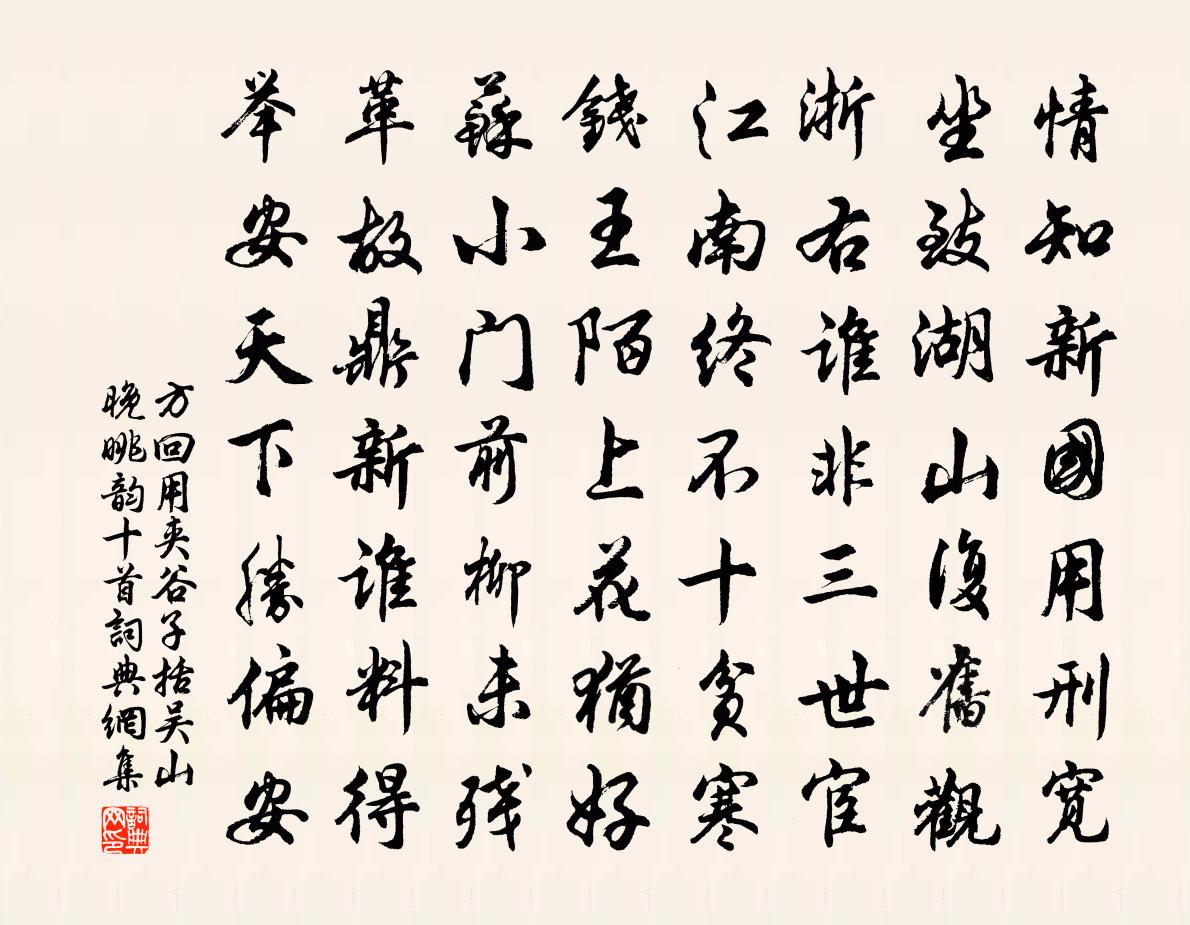 情知新國用刑寛
坐致湖山復舊觀
浙右誰非三世宦
江南終不十貧寒
錢王陌上花猶好
蘇小门前柳未残
革故鼎新誰料得
举安天下勝偏安
方回用夹谷子括吴山
晚眺韵十首詞典網集
詞典网印